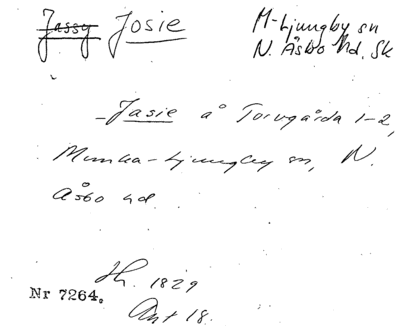 Jassy Josie
M-Ljungby sn
N. Åsbo hd. Sk
-Jasie å Torvgårda 1-2,
Munka-Ljungby sn, N.
Åsbo hd.
Jh. 1829
Nr 7264.
Ant 18.